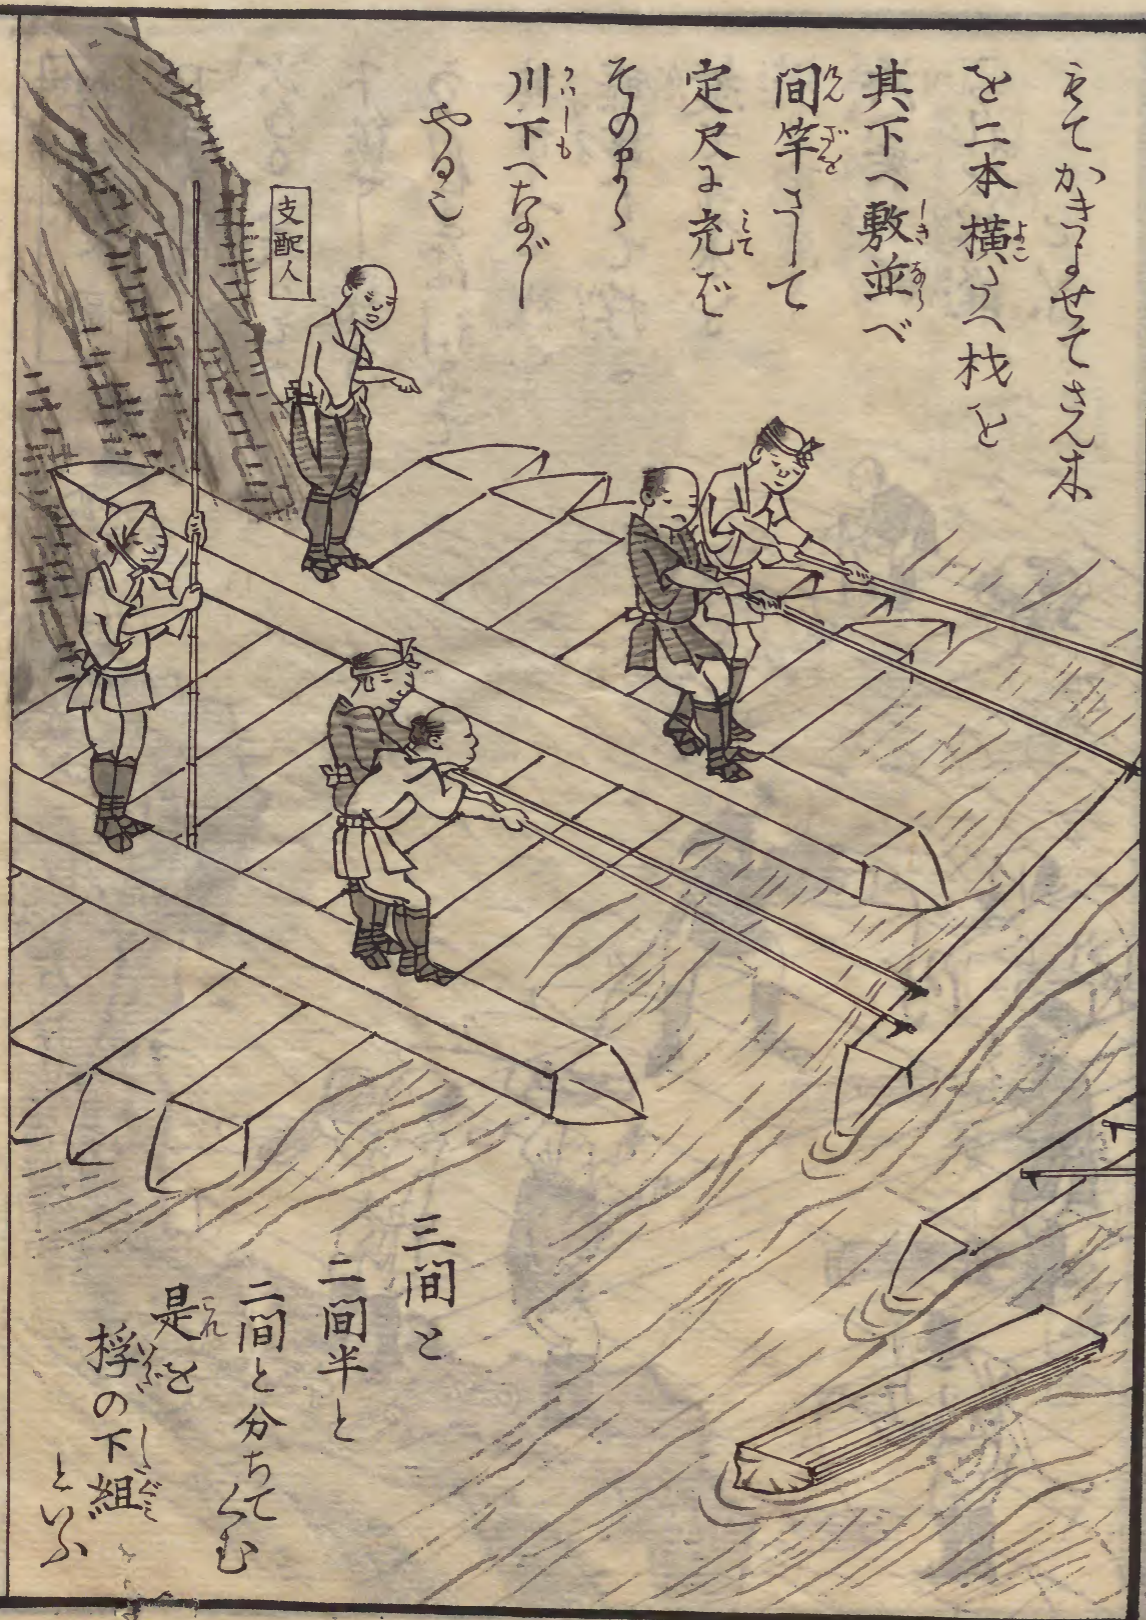 もてかきよせてさん木
を二本横たへ材を
其下へ敷並べ
間竿さして
定尺に充れば
そのまゝ
川下へながし
やる也
支配人
三間と
二間半と
二間と分ちてくむ
是を
桴の下組
といふ